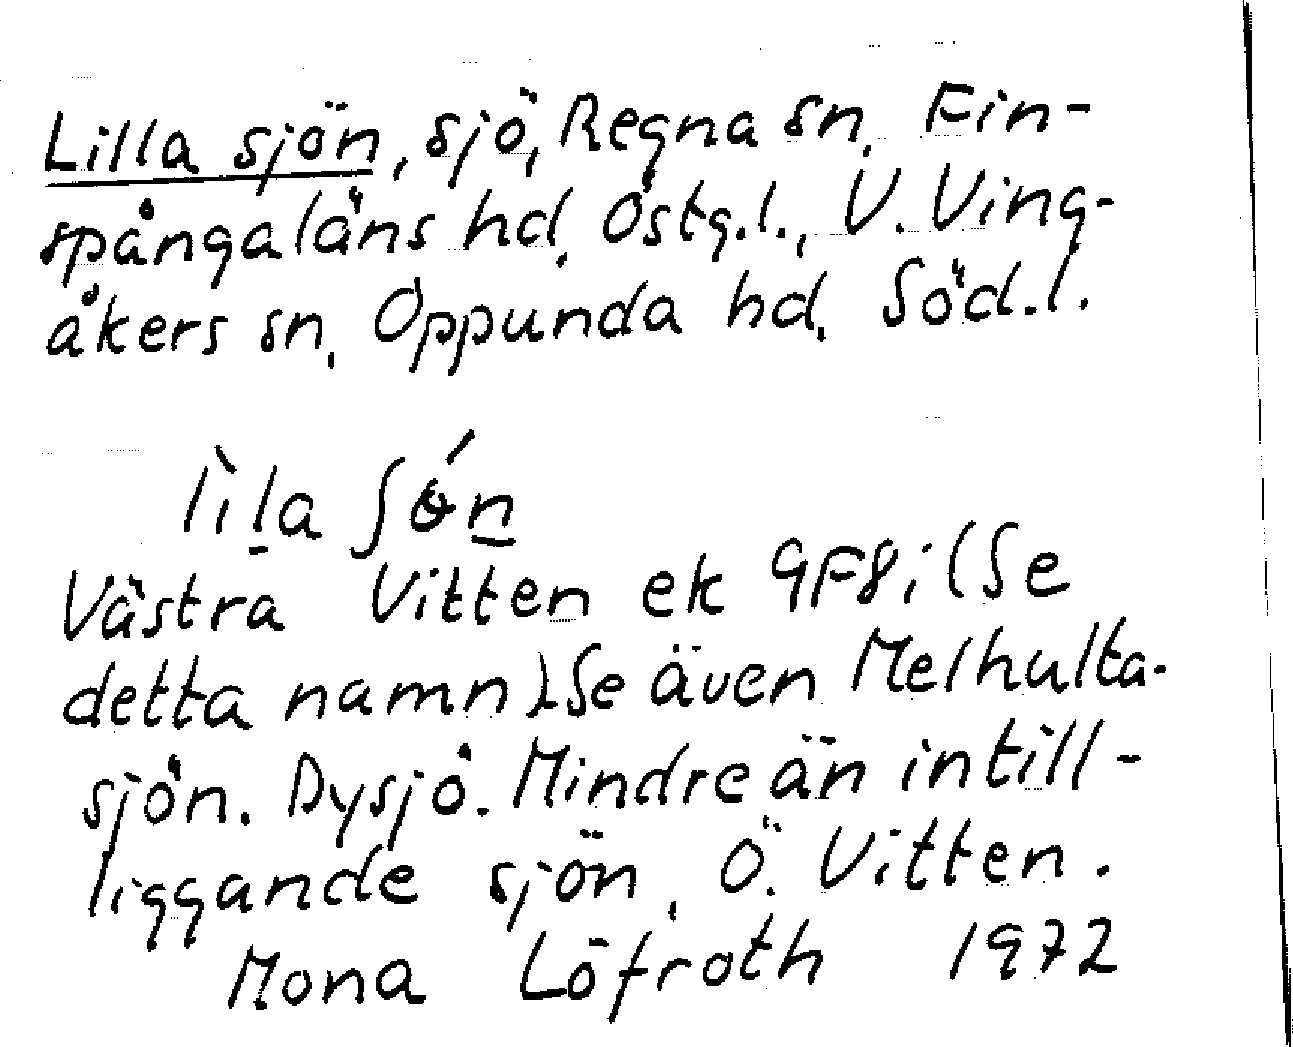 Lilla sjön, sjö, Regna sn, Fin-
spångaläns hd, Östg.l., V. Ving-
åkers sn, Oppunda hd, Söd.l.
lìl̠a ʃɵ́n̠
Västra Vitten ek 9F8i (Se
detta namn). Se även Melhulta-
sjön. Dysjö. Mindre än intill-
liggande sjön, Ö. Vitten.
Mona Löfroth 1972